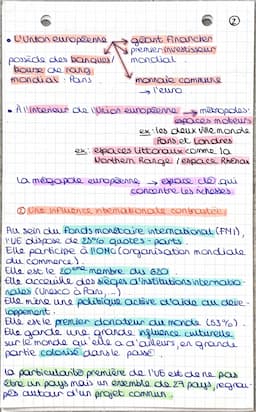 ②
• L'union européenne → géant financier
premier investisseur
mondial.
possède des banques/
bourse de rang
mondial : Paris
monnaie commune
→ l'euro
• A l'intérieur de l'Union européenne → métropoles
espaces moteurs
ex : les deux ville monde
Paris et Londres
ex : espaces littoraux comme la
Northern Range / espace Rhénan
La mégalopole européenne → espace clé qui
concentre les richesses
① Une influence internationale contrastée.
Au sein du Fonds monétaire international (FMI),
l'UE dispose de 25% quotes-parts.
Elle participe à l'OMC (organisation mondiale
du commerce).
Elle est le 20ème membre du G20
Elle accueille des sièges d'institutions internatio-
nales (Unesco à Paris, ...)
Elle mène une politique active d'aide au déve-
loppement.
Elle est le premier donateur du monde (53%).
Elle garde une grande influence culturelle
sur le monde qu'elle a d'ailleurs, en grande
partie colonisé dans le passé.
La particularité première de l'UE est de ne pas
être un pays mais un ensemble de 27 pays, regrou-
pés autour d'un projet commun.